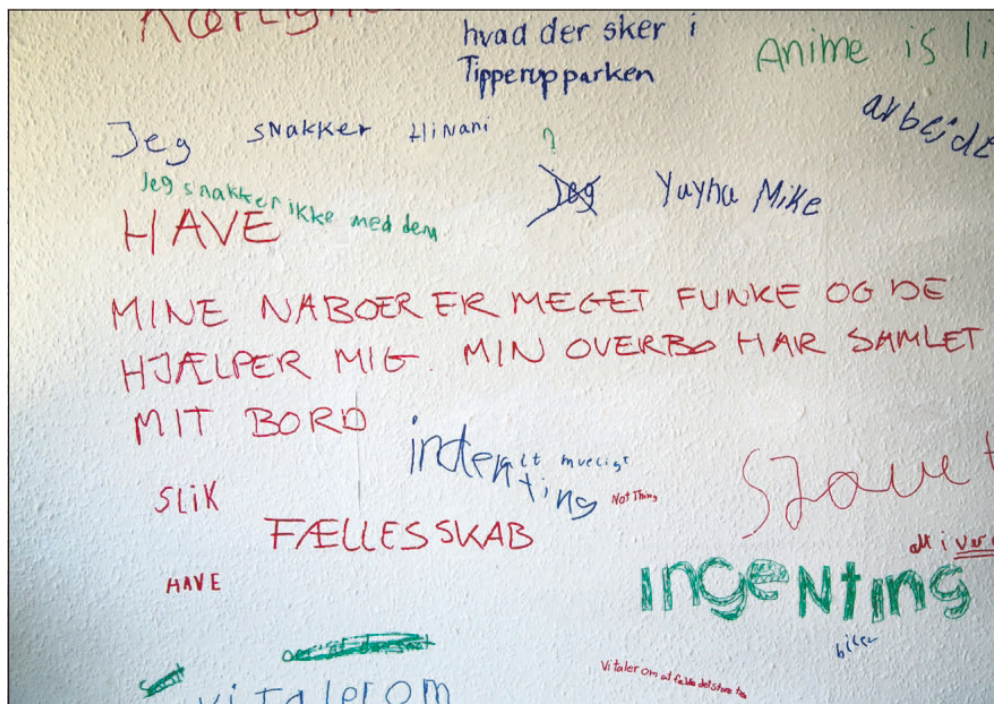 Kærlighe
hvad der sker i
Tipperupparken
Anime is li
arbejdt
Jeg snakker Hinani
?
Jeg snakker ikke med dem
Jeg
Yuyhu Mike
HAVE
MINE NABOER ER MEGET FUNKE OG DE
HJÆLPER MIG. MIN OVERBO HAR SAMLET
MIT BORD
indenting
alt mueligt
Not Thing
SLIK
Sjovet
FÆLLESSKAB
alt i ver
HAVE
INgeNting
biler
Vi taler om at fælde det store træ
vi Taler om